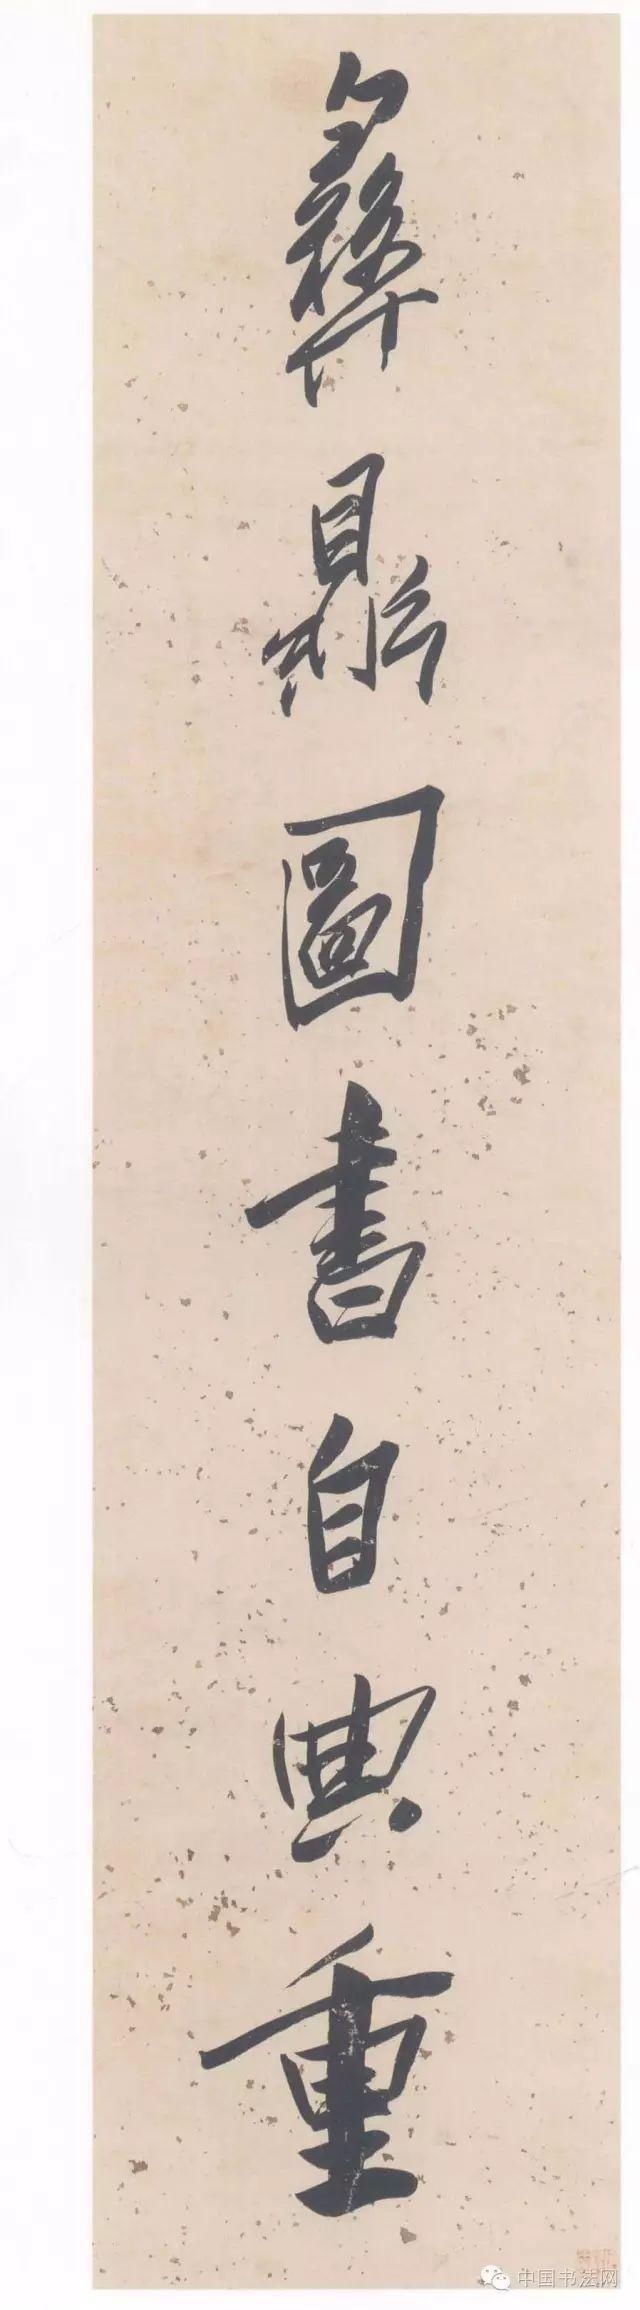 彝鼎圖書自典重
中国书法网